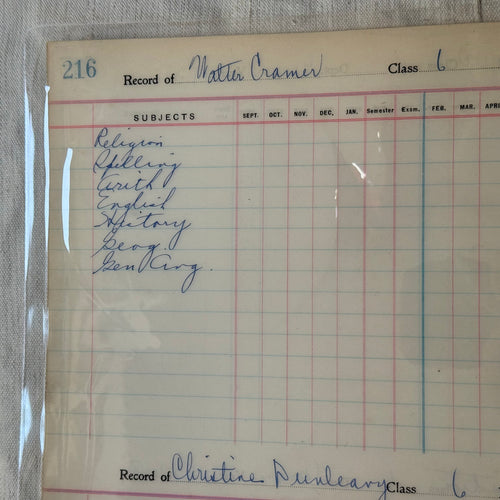 216 Record of Walter Cramer Class 6
SUBJECTS SEPT. OCT. NOV. DEC. JAN. Semester Exam. FEB. MAR. APR
Religion
Spelling
Arith
English
History
Geog.
Gen Avg.
Record of Christine Dunleavy Class 6